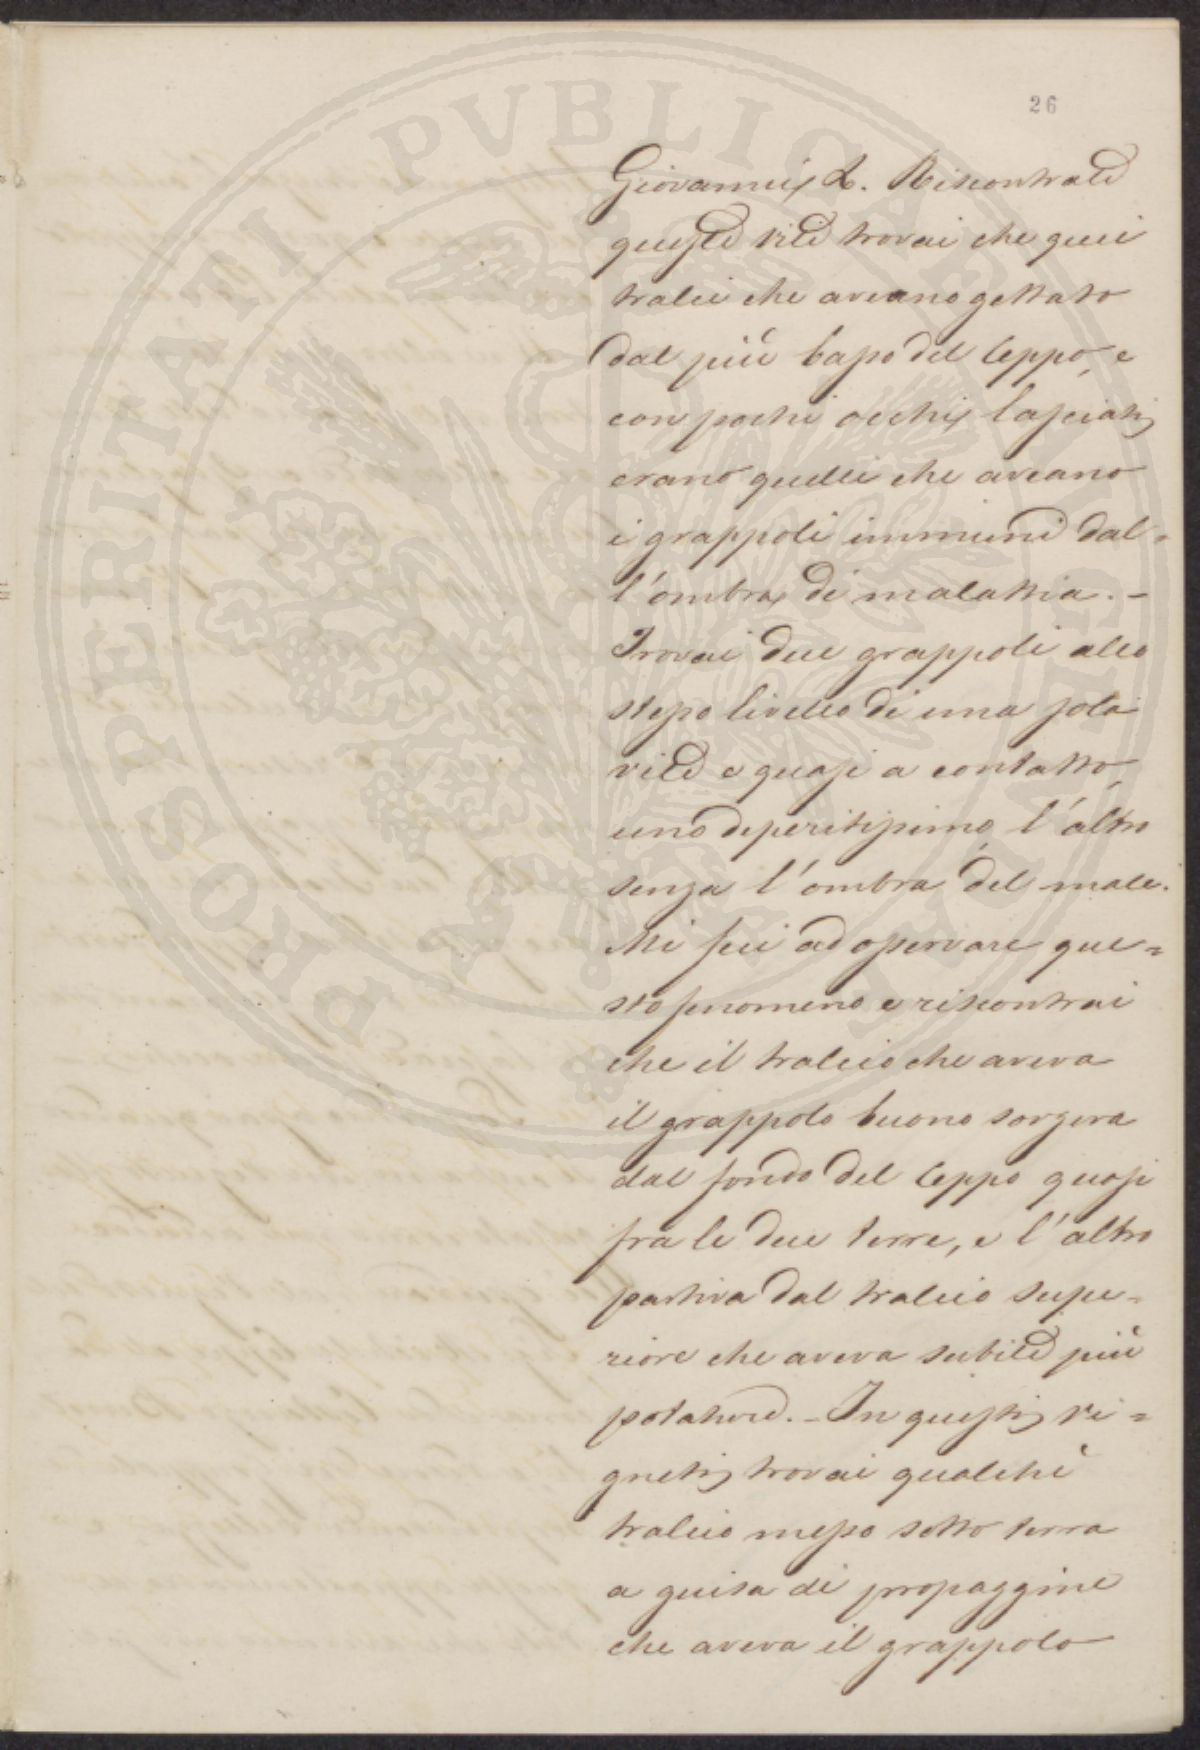 26
Giovanni L. Riscontrate
queste vite trovai che quei
tralci che aveano gettato
dal più basso del ceppo, e
con pochi occhi lasciati
erano quelli che aveano
i grappoli immuni dal=
l'ombra di malattia. -
Trovai due grappoli allo
stesso livello di una sola
vite e quasi a contatto,
uno deperitissimo, l'altro
senza l'ombra del male.
Mi feci ad osservare que=
sto fenomeno e riscontrai
che il tralcio che aveva
il grappolo buono sorgeva
dal fondo del ceppo quasi
fra le due terre, e l'altro
partiva dal tralcio supe=
riore che aveva subite più
potature. - In questi vi=
gneti trovai qualche
tralcio messo sotto terra
a guisa di propaggine
che aveva il grappolo
PROSPERITATI PVBLICAE AVGENDAE